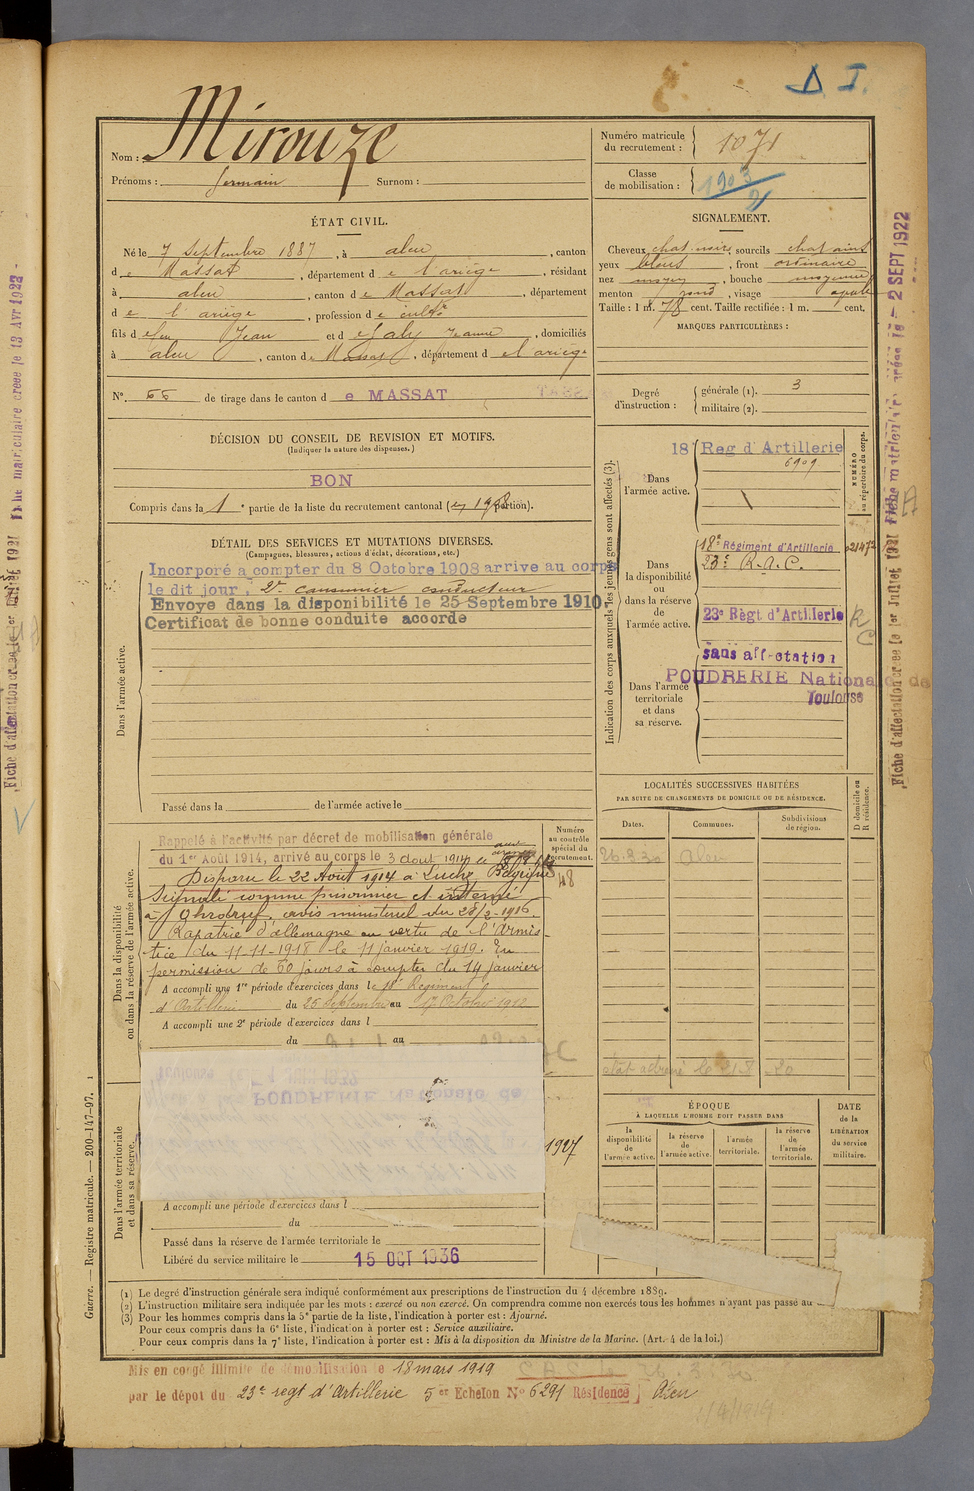 D. I.
Nom : Mirouze
Prénoms : Germain Surnom :
Numéro matricule du recrutement : 1071
Classe de mobilisation : 1903
21
ÉTAT CIVIL.
Né le 7 Septembre 1887, à aleu, canton
de Massat, département de l'ariège, résidant
à aleu, canton de Massat, département
de l'ariège, profession de cultr
fils de feu Jean et de Galy Jeanne, domiciliés
à aleu, canton de Massat, département de l'ariège
N° 66 de tirage dans le canton de MASSAT
SIGNALEMENT.
Cheveux chat. noirs, sourcils chatains
yeux bleus, front ordinaire
nez moyen, bouche moyenne
menton rond, visage ovale
Taille : 1 m. 78 cent. Taille rectifiée : 1 m. cent.
MARQUES PARTICULIÈRES :
Degré d'instruction : générale (1). 3
militaire (2).
DÉCISION DU CONSEIL DE REVISION ET MOTIFS.
(Indiquer la nature des dispenses.)
BON
Compris dans la 1e partie de la liste du recrutement cantonal (portion).
DÉTAIL DES SERVICES ET MUTATIONS DIVERSES.
(Campagnes, blessures, actions d'éclat, décorations, etc.)
Dans l'armée active.
Incorporé a compter du 8 Octobre 1908 arrive au corps
le dit jour, 2e canonnier conducteur
Envoye dans la disponibilité le 25 Septembre 1910.
Certificat de bonne conduite accorde
Passé dans la de l'armée active le
Indication des corps auxquels les jeunes gens sont affectés (3).
NUMÉRO au répertoire du corps.
Dans l'armée active.
18 Reg d'Artillerie
6909
Dans la disponibilité ou dans la réserve de l'armée active.
18e Régiment d'Artillerie
23e R.A.C.
23e Règt d'Artillerie
Dans l'armée territoriale et dans sa réserve.
sans affectation
POUDRERIE Nationale de
Toulouse
LOCALITÉS SUCCESSIVES HABITÉES
PAR SUITE DE CHANGEMENTS DE DOMICILE OU DE RÉSIDENCE.
D domicile ou R résidence.
Dates. Communes. Subdivisions de région.
Aleu
Dans la disponibilité ou dans la réserve de l'armée active.
Numéro au contrôle spécial du recrutement.
Rappelé à l'activité par décret de mobilisation générale
du 1er Août 1914, arrivé au corps le 3 aout 1914
Disparu le 22 Août 1914 à Luchy Belgique
Signalé comme prisonnier et interné
à Ohrdruf, avis ministeriel du 28/2-1916.
Rapatrié d'allemagne en vertu de l'Armis-
tice du 11-11-1918 le 11 janvier 1919. En
permission de 60 jours à compter du 14 janvier
A accompli une 1re période d'exercices dans le 18e Regiment
d'Artillerie du 26 Septembre au 12 Octobre 1912
A accompli une 2e période d'exercices dans l
du au
Dans l'armée territoriale et dans sa réserve.
1927
A accompli une période d'exercices dans l
du au
Passé dans la réserve de l'armée territoriale le
Libéré du service militaire le 15 OCT 1936
ÉPOQUE
À LAQUELLE L'HOMME DOIT PASSER DANS
la disponibilité de l'armée active.
la réserve de l'armée active.
l'armée territoriale.
la réserve de l'armée territoriale.
DATE de la LIBÉRATION du service militaire.
(1) Le degré d'instruction générale sera indiqué conformément aux prescriptions de l'instruction du 4 décembre 1889.
(2) L'instruction militaire sera indiquée par les mots : exercé ou non exercé. On comprendra comme non exercés tous les hommes n'ayant pas passé au
(3) Pour les hommes compris dans la 5e partie de la liste, l'indication à porter est : Ajourné.
Pour ceux compris dans la 6e liste, l'indication à porter est : Service auxiliaire.
Pour ceux compris dans la 7e liste, l'indication à porter est : Mis à la disposition du Ministre de la Marine. (Art. 4 de la loi.)
Mis en congé illimité de démobilisation le 18 mars 1919
par le dépot du 23e regt d'Artillerie 5er Echelon N° 6291 Résidence Aleu
Guerre. — Registre matricule. — 200-147-97.